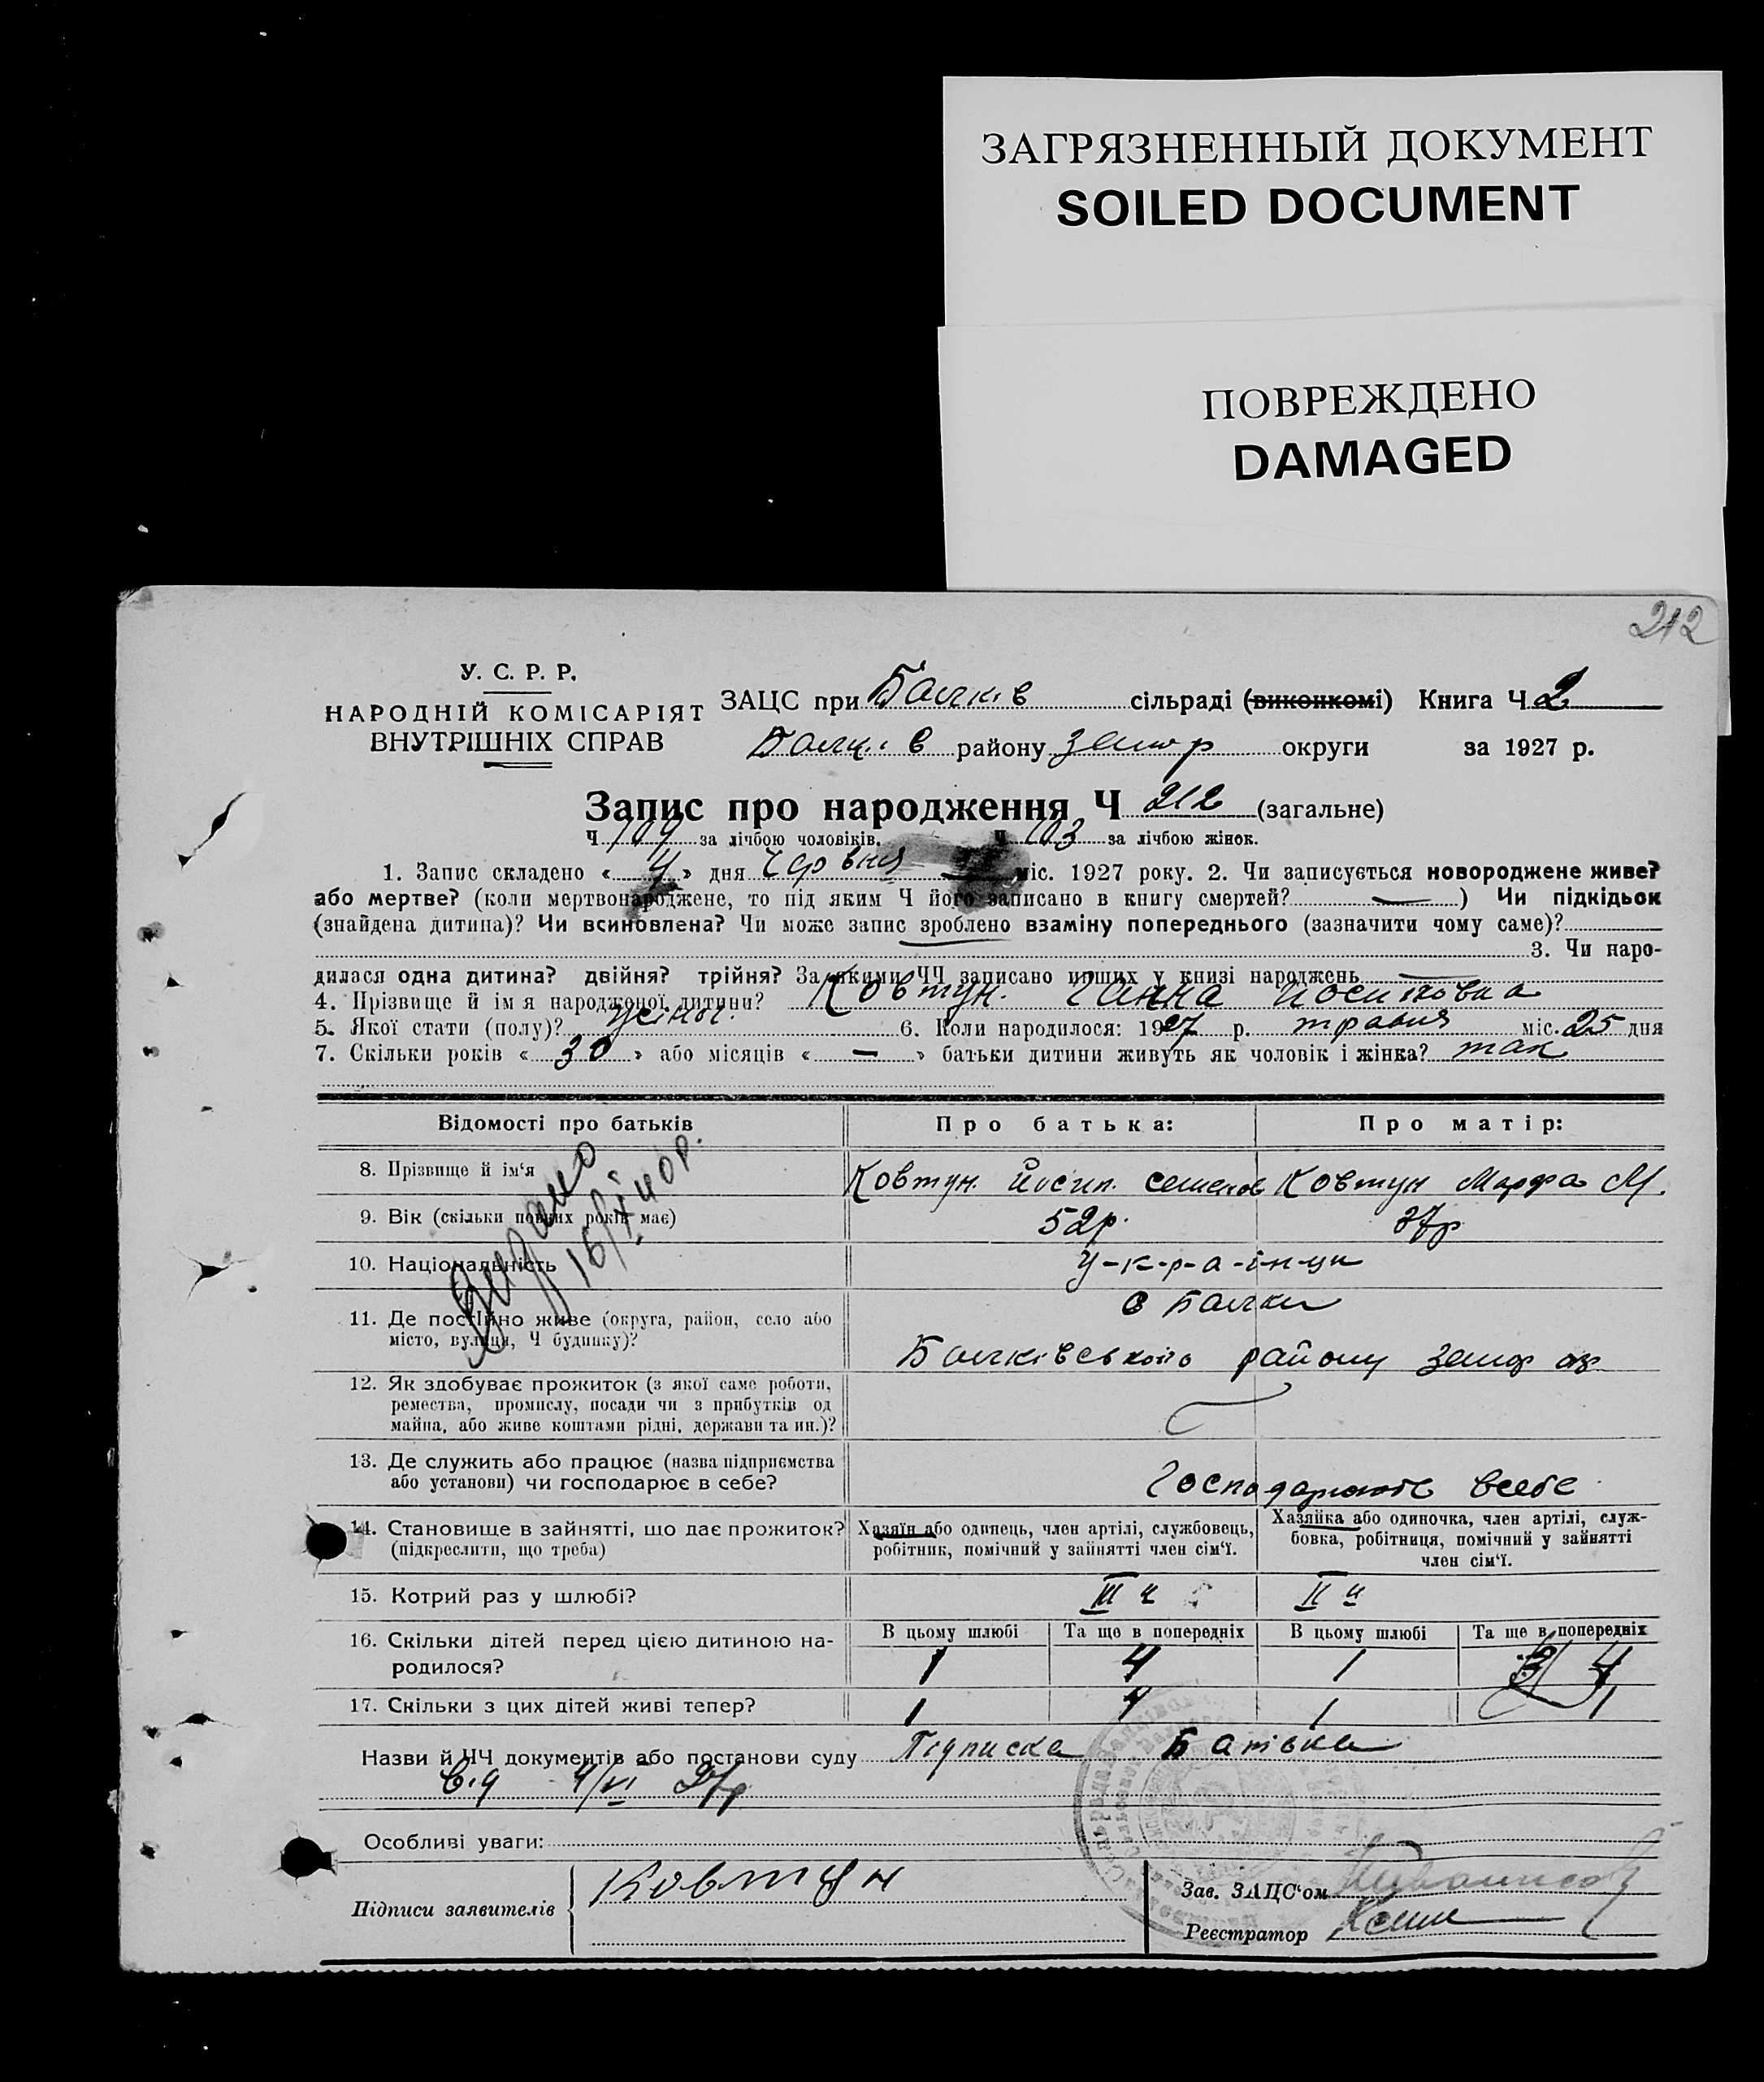 ЗАГРЯЗНЕННЫЙ ДОКУМЕНТ
SOILED DOCUMENT
ПОВРЕЖДЕНО
DAMAGED
212
У. С. Р. Р.
НАРОДНІЙ КОМІСАРІЯТ
ВНУТРІШНІХ СПРАВ
ЗАЦС при Балків сільраді (виконкомі) Книга Ч 2
Балк. в району Запор округи за 1927 р.
Запис про народження Ч 212 (загальне)
Ч 109 за лічбою чоловіків. Ч 103 за лічбою жінок.
1. Запис складено « 4 » дня Червня міс. 1927 року. 2. Чи записується новороджене живе?
або мертве? (коли мертвонароджене, то під яким Ч його записано в книгу смертей? — ) Чи підкідьок
(знайдена дитина)? Чи всиновлена? Чи може запис зроблено взаміну попереднього (зазначити чому саме)?
3. Чи наро-
дилася одна дитина? двійня? трійня? За якими ЧЧ записано инших у книзі народжень —
4. Прізвище й ім я народженої дитини? Ковтун. Ганна Йосиповна
5. Якої стати (полу)? жіноч. 6. Коли народилося: 1927 р. травня міс. 25 дня
7. Скільки років « 30 » або місяців « — » батьки дитини живуть як чоловік і жінка? так
Відомості про батьків Про батька: Про матір:
8. Прізвище й ім‘я Ковтун. Йосип. Семенов Ковтун Марфа М.
9. Вік (скільки повних років має) 52р. 37р
10. Національність У-к-р-а-ін-ци
11. Де постійно живе (округа, район, село або с Балки
місто, вулиця, Ч будинку)? Балківського району Запор ок
Видано
16/X
12. Як здобуває прожиток (з якої саме роботи,
ремества, промислу, посади чи з прибутків од
майна, або живе коштами рідні, держави та ин.)?
13. Де служить або працює (назва підприємства
або установи) чи господарює в себе? Господарюють всебе
14. Становище в зайнятті, що дає прожиток? Хазяїн або одинець, член артілі, службовець, Хазяйка або одиночка, член артілі, служ-
(підкреслити, що треба) робітник, помічний у зайнятті член сім‘ї. бовка, робітниця, помічний у зайнятті
член сім‘ї.
15. Котрий раз у шлюбі? III й II й
16. Скільки дітей перед цією дитиною на- В цьому шлюбі Та що в попередніх В цьому шлюбі Та ще в попередніх
родилося? 1 4 1 4
17. Скільки з цих дітей живі тепер? 1 4 1 1
Назви й ЧЧ документів або постанови суду Підписка Батівка
від 4/VI 27р
Особливі уваги:
Підписи заявителів Ковтун
Зав. ЗАЦС‘ом
Реєстратор